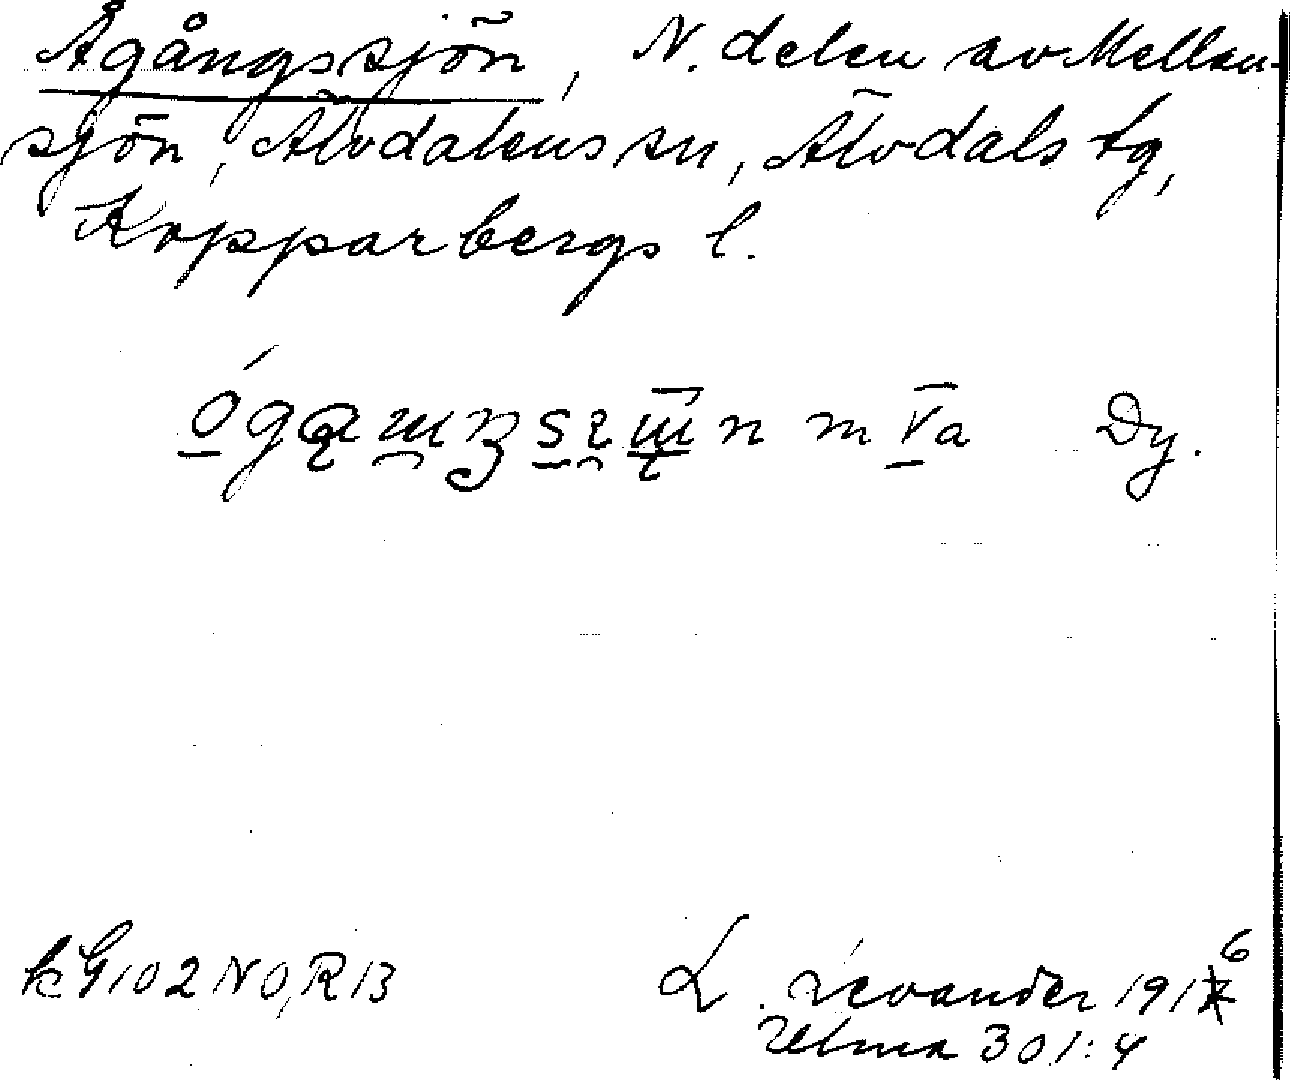 Ågångssjön, N. delen av Mellan-
sjön, Älvdalens sn, Älvdals tg,
Kopparbergs l.
Dy.
kG 102 NO, R 13
L. Levander 1916
Ulma 301:4